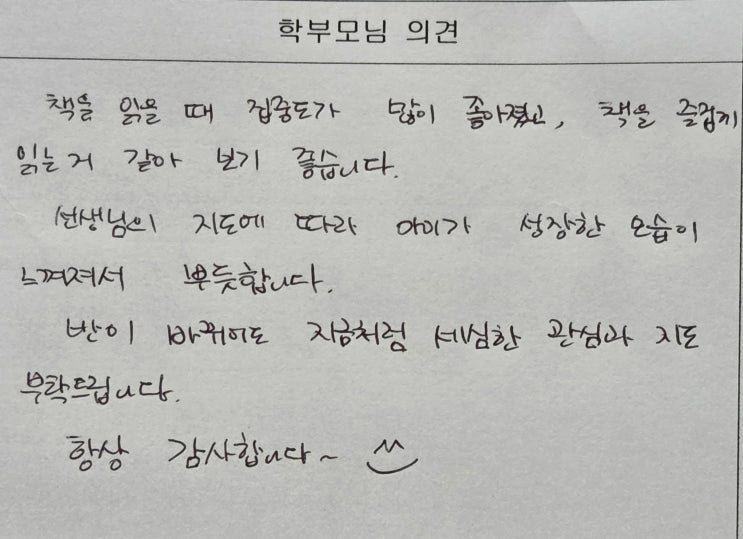 학부모님 의견
책을 읽을 때 집중도가 많이 좋아졌고, 책을 즐겁게
읽는거 같아 보기 좋습니다.
선생님의 지도에 따라 아이가 성장한 모습이
느껴져서 뿌듯합니다.
반이 바뀌어도 지금처럼 세심한 관심과 지도
부탁드립니다.
항상 감사합니다~